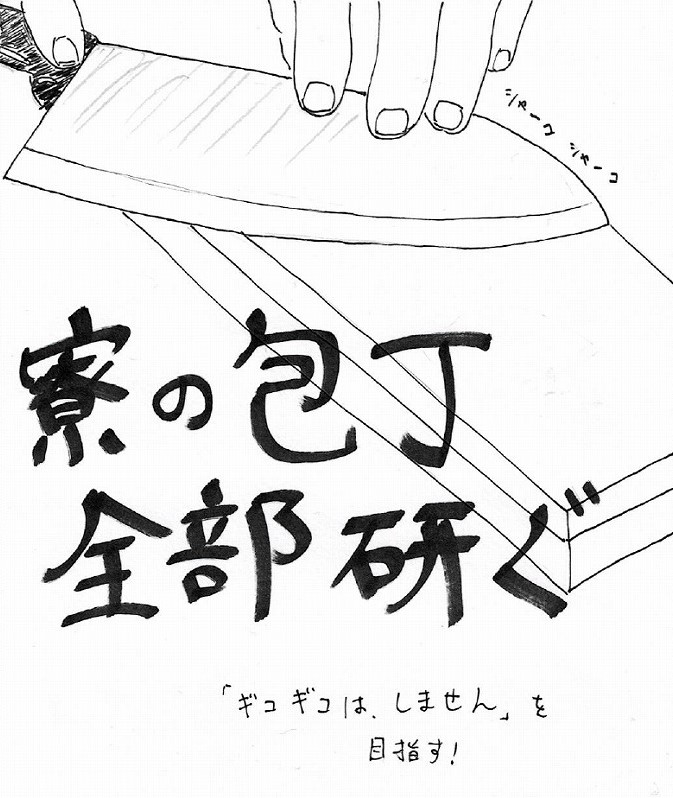 シャーコ シャーコ
寮の包丁
全部研ぐ
「ギコギコは、しません」を
目指す!